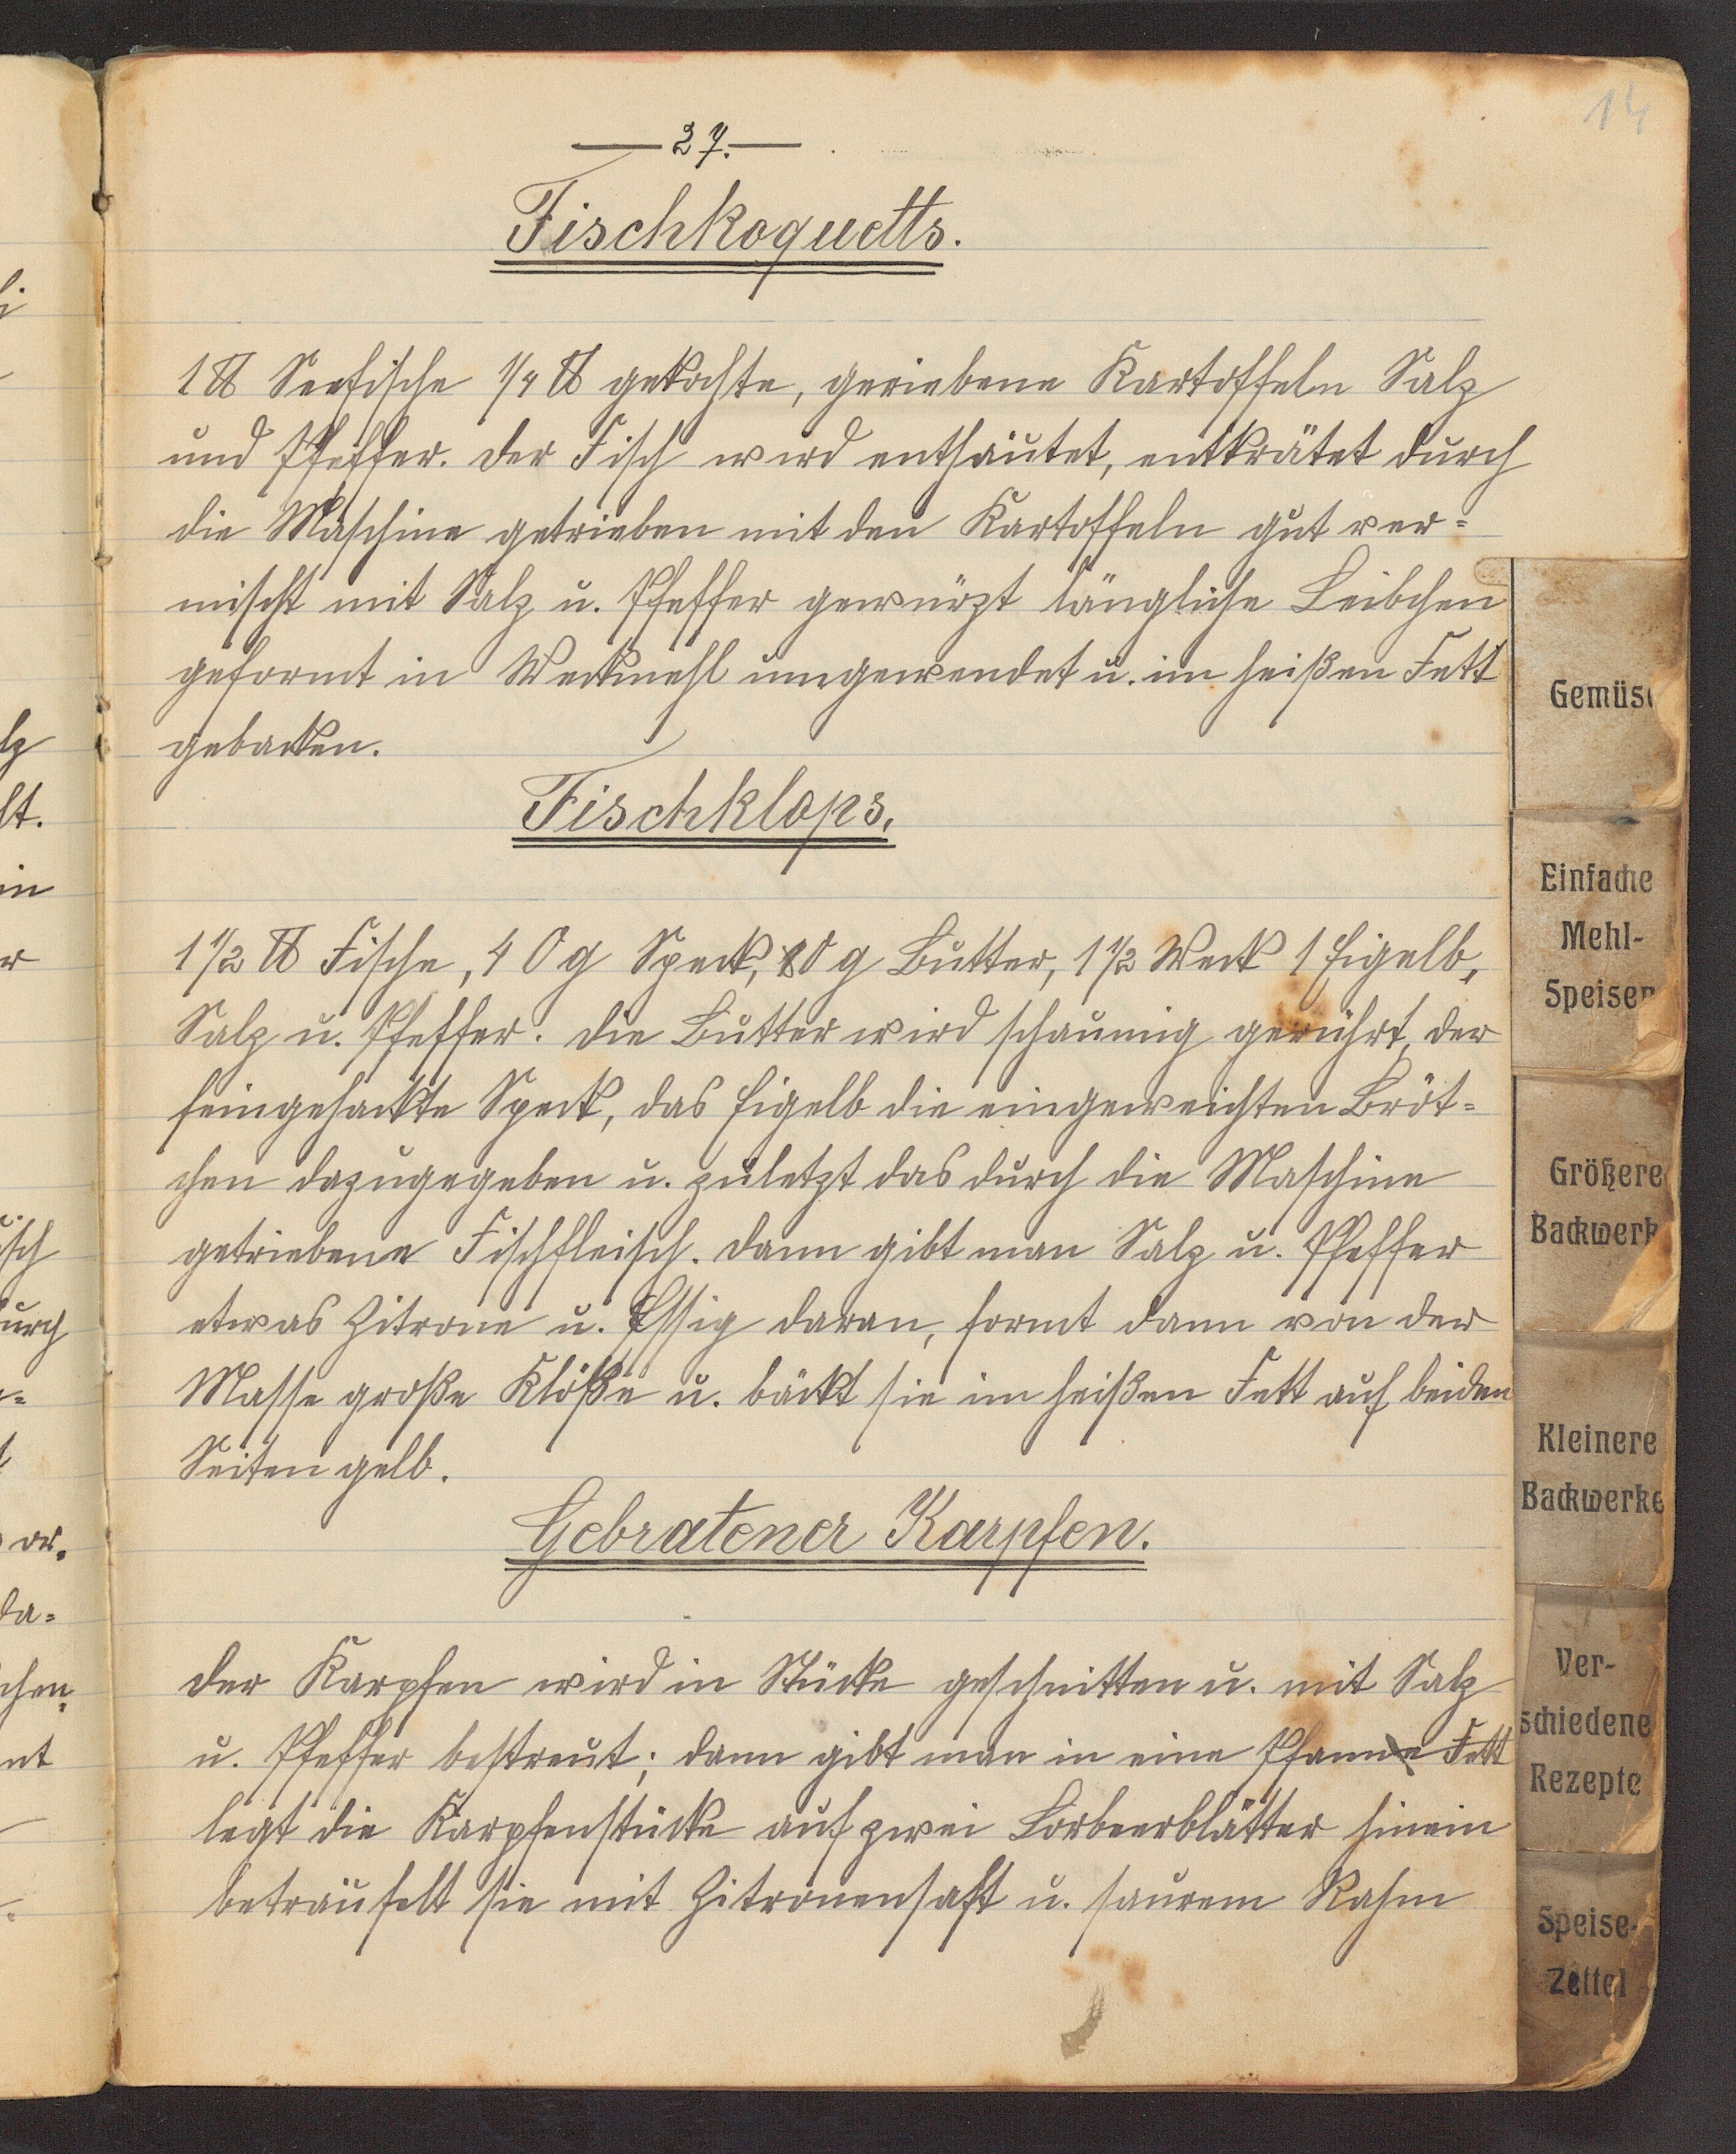 14
— 27. —
Fischkoquetts.
1 ℔ Seefische 1/4 ℔ gekochte, geriebene Kartoffeln Salz
und Pfeffer. Der Fisch wird enthäutet, entkrätet durch
die Maschine getrieben mit den Kartoffeln gut ver=
mischt mit Salz u. Pfeffer gewürzt längliche Leibchen
geformt in Weckmehl umgewendet u. im heißen Fett
gebacken.
Fischklops.
1 1/2 ℔ Fische, 40 g Speck, 80 g Butter, 1 1/2 Weck 1 Eigelb,
Salz u. Pfeffer. Die Butter wird schaumig gerührt, der
feingehackte Speck, das Eigelb die eingeweichten Bröt=
chen dazugegeben u. zuletzt das durch die Maschine
getriebene Fischfleisch. Dann gibt man Salz u. Pfeffer
etwas Zitrone u. Essig daran, formt dann von der
Masse große Klöße u. bäckt sie im heißen Fett auf beiden
Seiten gelb.
Gebratener Karpfen.
Der Karpfen wird in Stücke geschnitten u. mit Salz
u. Pfeffer bestreut; dann gibt man in eine Pfanne Fett
legt die Karpfenstücke auf zwei Lorbeerblätter hinein
beträufelt sie mit Zitronensaft u. saurem Rahm
Gemüse
Einfache
Mehl-
Speisen
Größere
Backwerk
Kleinere
Backwerke
Ver-
schiedene
Rezepte
Speise-
Zettel